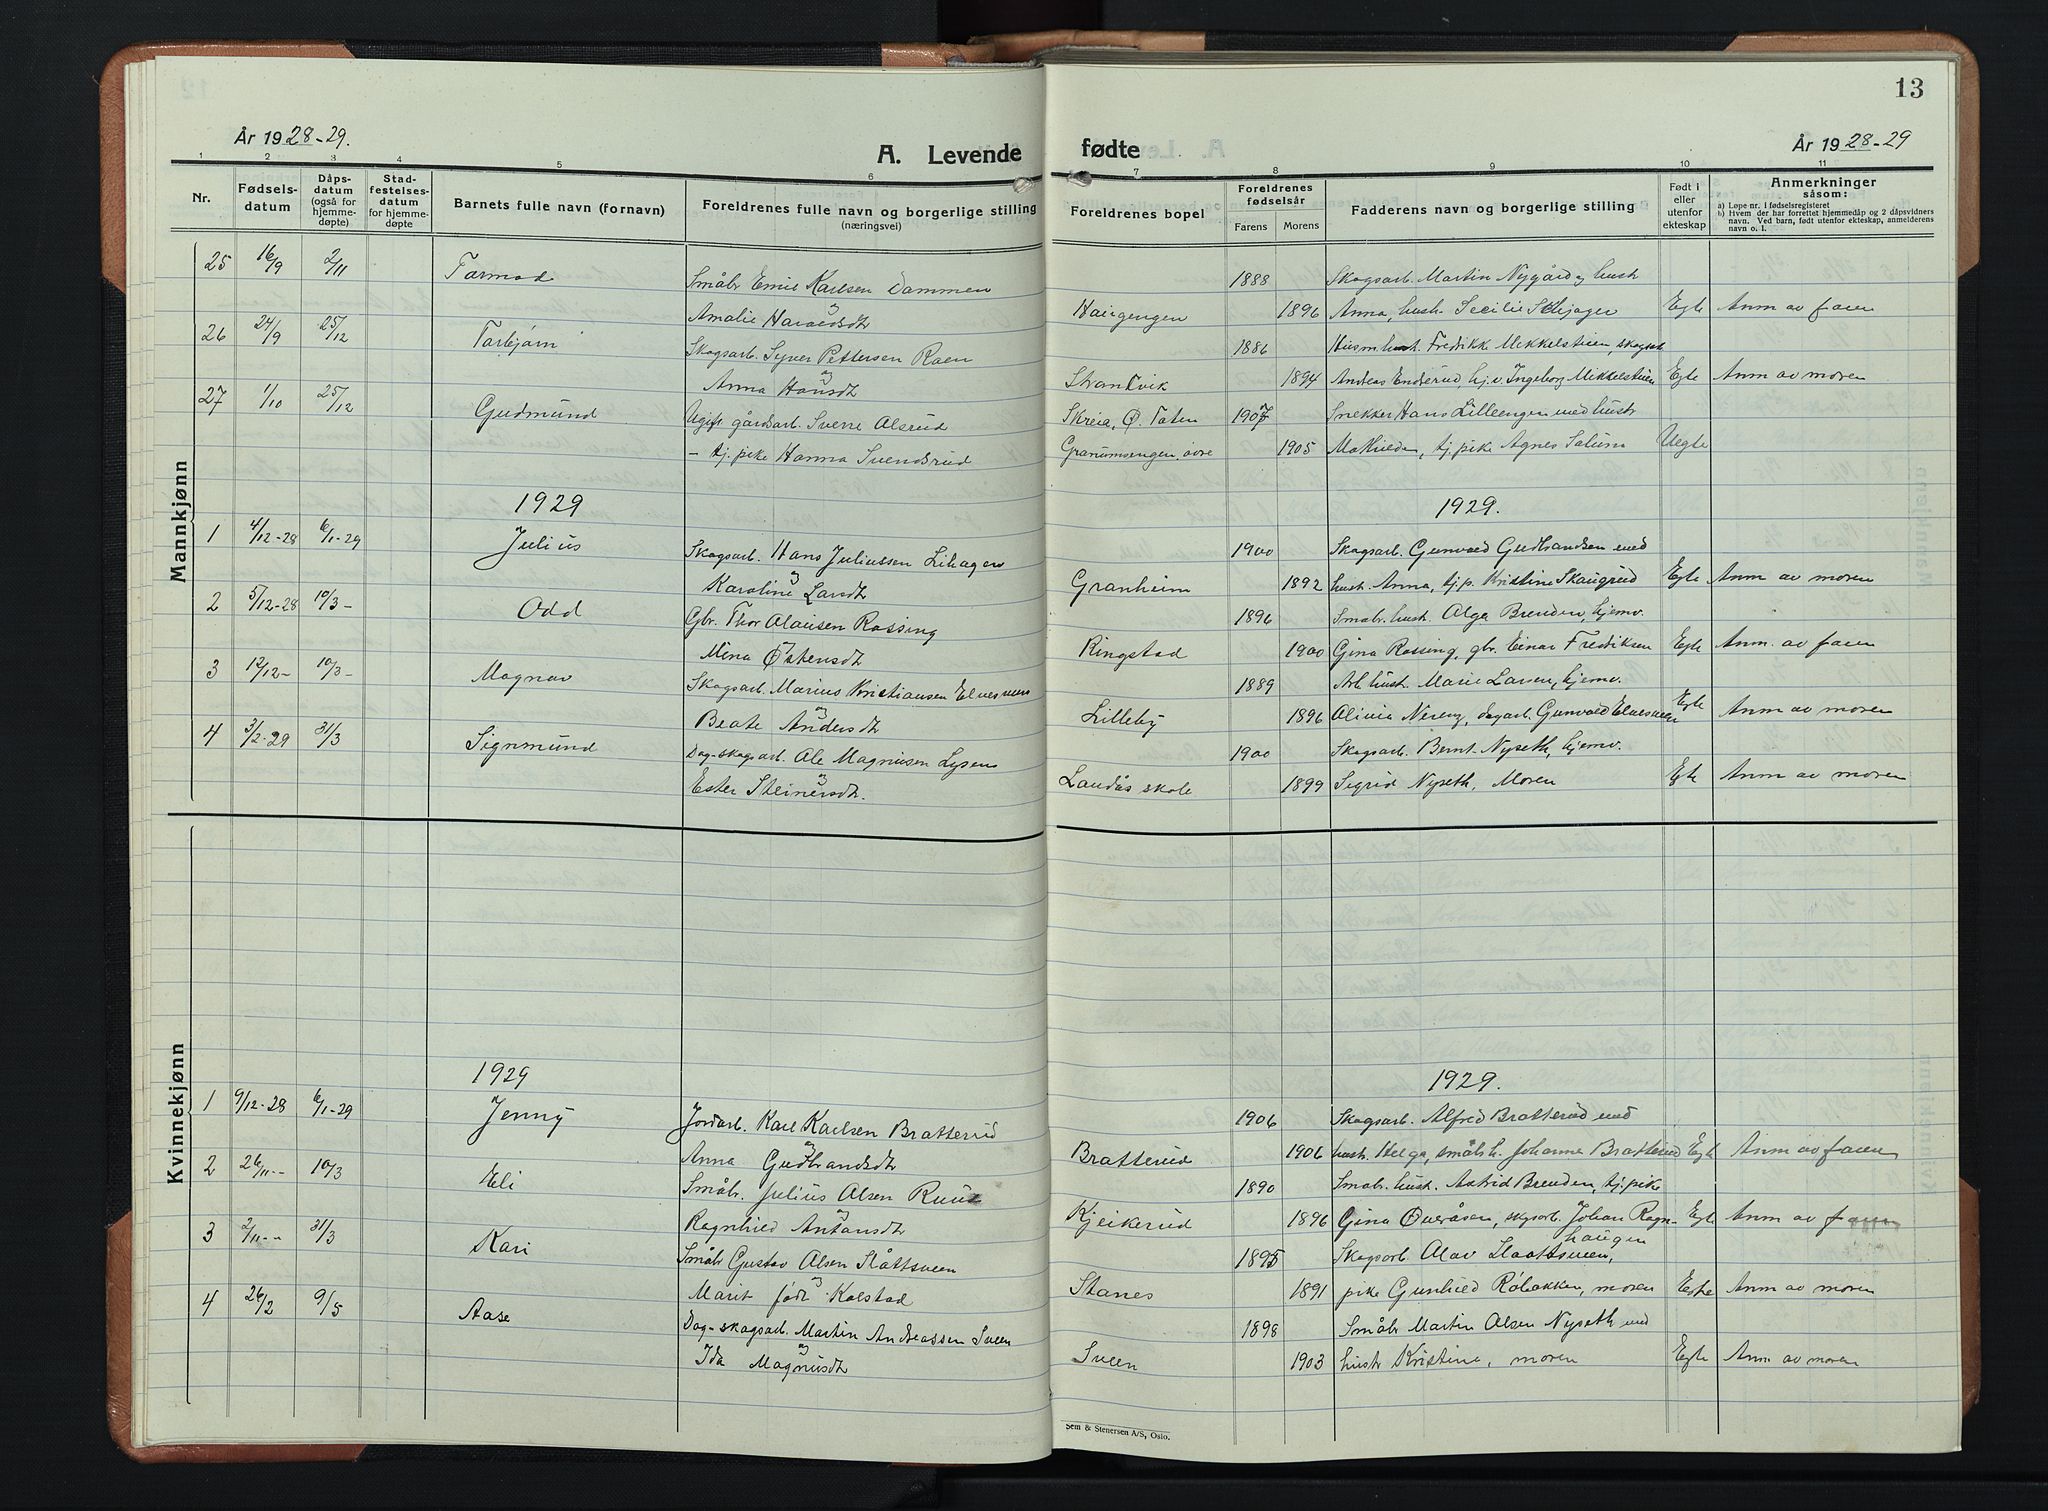 13
År 1928-29.
A. Levende
fødte
År 1928-29
1 2 3 4 5 6 7 8 9 10 11
Nr.
Fødselsdatum
Dåpsdatum (også for hjemmedøpte)
Stadfestelsesdatum for hjemmedøpte
Barnets fulle navn (fornavn)
Foreldrenes fulle navn og borgerlige stilling (næringsvei)
Foreldrenes bopel
Foreldrenes fødselsår
Farens Morens
Fadderens navn og borgerlige stilling
Født i eller utenfor ekteskap
Anmerkninger såsom:
a) Løpe-nr. i fødselsregisteret
b) Hvem der har forrettet hjemmedåp og 2 dåpsvidners navn. Ved barn, født utenfor ekteskap, anmelderens navn o. l.
Mannkjønn
25 16/9 2/11 Tormod Småbr Emil Karlsen Dammen 1888 Skogsarb. Martin Nygård og hust
og Amalie Haraldsdt 1896 Anna, hust. Secilie Skjager Egte Anm av faren
26 24/9 25/12 Torbjørn Skogsarb. Syver Pettersen Roen 1886 Husm.hust. Fredrikke Mikkelstuen, skogsarb
og Anna Hansdt Strandvik 1894 Andreas Enderud, hj.v. Ingeborg Mikkelstuen Egte Anm av moren
27 1/10 25/12 Gudmund Ugift gårdsarb. Sverre Alsrud Skreia, Ø. Toten 1907 Snekker Hans Lilleengen med hust
- tj. pike Hanna Svendsrud Granumsengen, øvre 1905 Mathilde, tj. pike Agnes Solum Uegte
1929 1929.
1 4/12-28 6/1-29 Julius Skogsarb. Hans Juliussen Lihagen 1900 Skogsarb. Gunvald Gudbrandsen med
og Karoline Larsdt Granheim 1892 hust. Anna, tj.p. Kristine Skaugrud Egte Anm av moren
2 5/12-28 10/3- Odd Gbr. Thor Olausen Rossing 1896 Småbr. hust. Olga Brenden, hjemv.
Mina Østensdt Ringstad 1900 Gina Rossing, gbr. Einar Fredriksen Egte Anm. av faren
3 12/12- 10/3- Magnar Skogsarb. Marius Kristiansen Elvesveen 1889 Arb. hust. Marie Larsen, hjemv.
og Beate Andersdt Lilleby 1896 Olivia Nereng, dagarb. Gunvald Elvesveen Egte Anm av moren
4 3/2-29 31/3 Signmund Dag-skogsarb. Ole Magnusen Lysens 1900 Skogsarb. Bernt Nyseth, hjemv.
og Ester Steinersdt. Landås skole 1899 Sigrid Nyseth, Moren Egte Anm av moren
Kvinnekjønn
1929 1929.
1 9/12-28 6/1-29 Jenny Jordarb. Karl Karlsen Bratterud 1906 Skogsarb. Alfred Bratterud med
og Anna Gudbrandsdt Bratterud 1906 hust. Helga, småbr.h. Johanne Bratterud Egte Anm av faren
2 26/11-- 10/3 Eli Småbr. Julius Olsen Ruud 1890 Småbr. hust. Astrid Brenden, tj. pike
og Ragnhild Antonsdt Kjeikerud 1896 Gina Overåsen, skgsarb. Johan Rognhaugen Egte Anm av faren
3 2/11-- 31/3 Kari Småbr Gustav Olsen Slåttsveen 1895 Skogsarb. Olav Slaattsveen,
og Marit født Kolstad Stanes 1891 pike Gunhild Røbakken, moren Egte Anm av moren
4 26/2 9/5 Aase Dag-skogsarb. Martin Andreassen Sveen 1898 Småbr Martin Olsen Nyseth med
og Ida Magnusdt Sveen 1903 hust Kristine, moren Egte Anm. av moren
Sem & Stenersen A/S, Oslo.